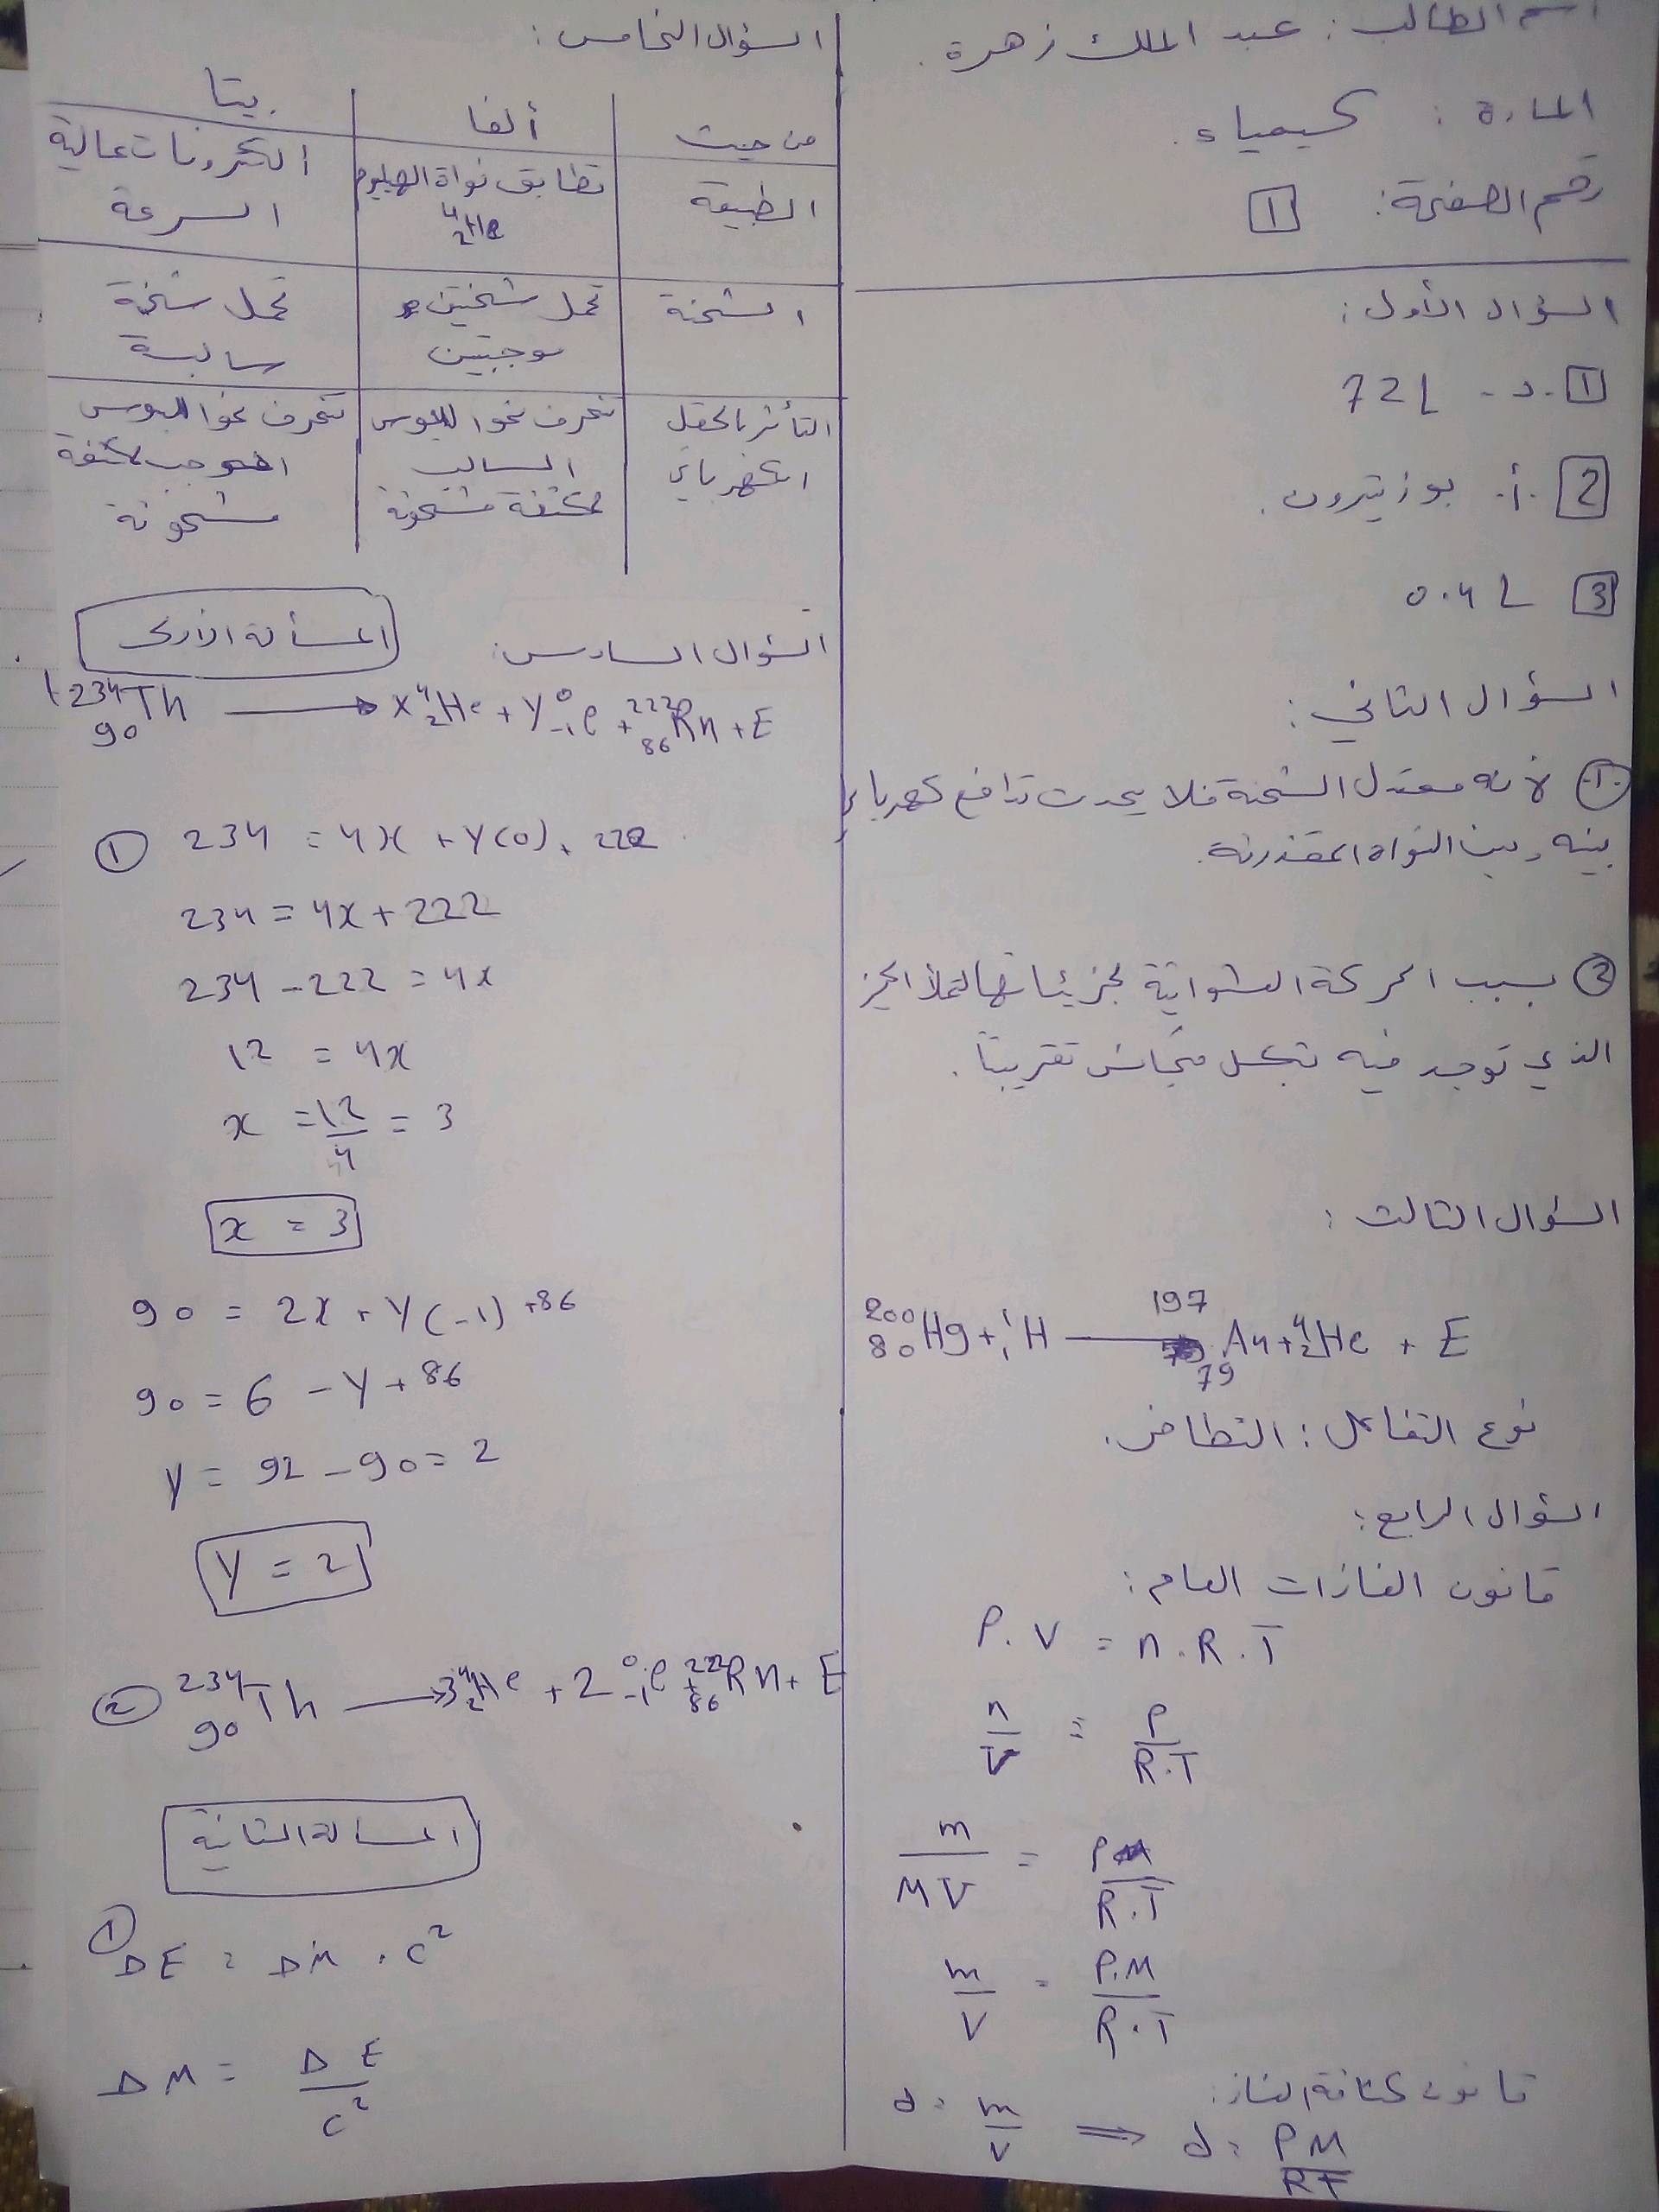 اسم الطالب: عبد الملك زهرة.
المادة: كيمياء.
رقم الصفحة: 1
السؤال الأول:
1 .د - 72L
2 .أ. بوزيترون.
3 0.4 L
السؤال الثاني:
1. لأنه معتدل الشحنة فلا يحدث تدافع كهربائي
بينه وبين النواة المقذوفة.
2 بسبب الحركة العشوائية لجزيئاتها لتملأ الحيز
الذي توجد فيه بشكل متجانس تقريباً.
السؤال الثالث:
²⁰⁰₈₀Hg + ¹₁H → ¹⁹⁷₇₉Au + ⁴₂He + E
نوع التفاعل: التطافر.
السؤال الرابع:
قانون الغازات العام:
P.V = n.R.T
n/V = P/R.T
m/MV = P/R.T
m/V = P.M/R.T
قانون كثافة الغاز:
d = m/V ⟹ d = PM/RT
السؤال الخامس:
من حيث ألفا بيتا
الطبيعة تطابق نواة الهيليوم ⁴₂He الكترونات عالية السرعة
الشحنة تحمل شحنتين موجبتين تحمل شحنة سالبة
التأثر بالحقل الكهربائي تنحرف نحو اللبوس السالب لمكثفة مشحونة تنحرف نحو اللبوس الموجب لمكثفة مشحونة
السؤال السادس:
المسألة الأولى
²³⁴₉₀Th → x⁴₂He + y⁰₋₁e + ²²²₈₆Rn + E
1 234 = 4x + y(0) + 222
234 = 4x + 222
234 - 222 = 4x
12 = 4x
x = 12/4 = 3
x = 3
90 = 2x + y(-1) + 86
90 = 6 - y + 86
y = 92 - 90 = 2
y = 2
2 ²³⁴₉₀Th → 3⁴₂He + 2⁰₋₁e + ²²²₈₆Rn + E
المسألة الثانية
1 ΔE = Δm . c²
Δm = ΔE/c²